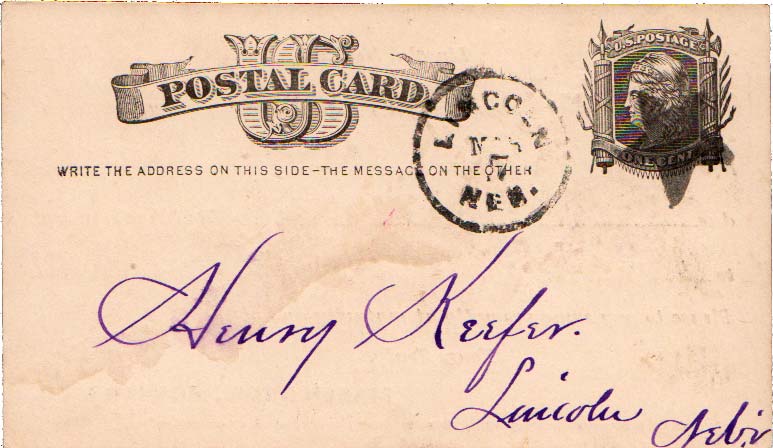 US
POSTAL CARD
U.S. POSTAGE
ONE CENT
LINCOLN
17
NEB.
WRITE THE ADDRESS ON THIS SIDE–THE MESSAGE ON THE OTHER
Henry Keefer.
Lincoln Nebr